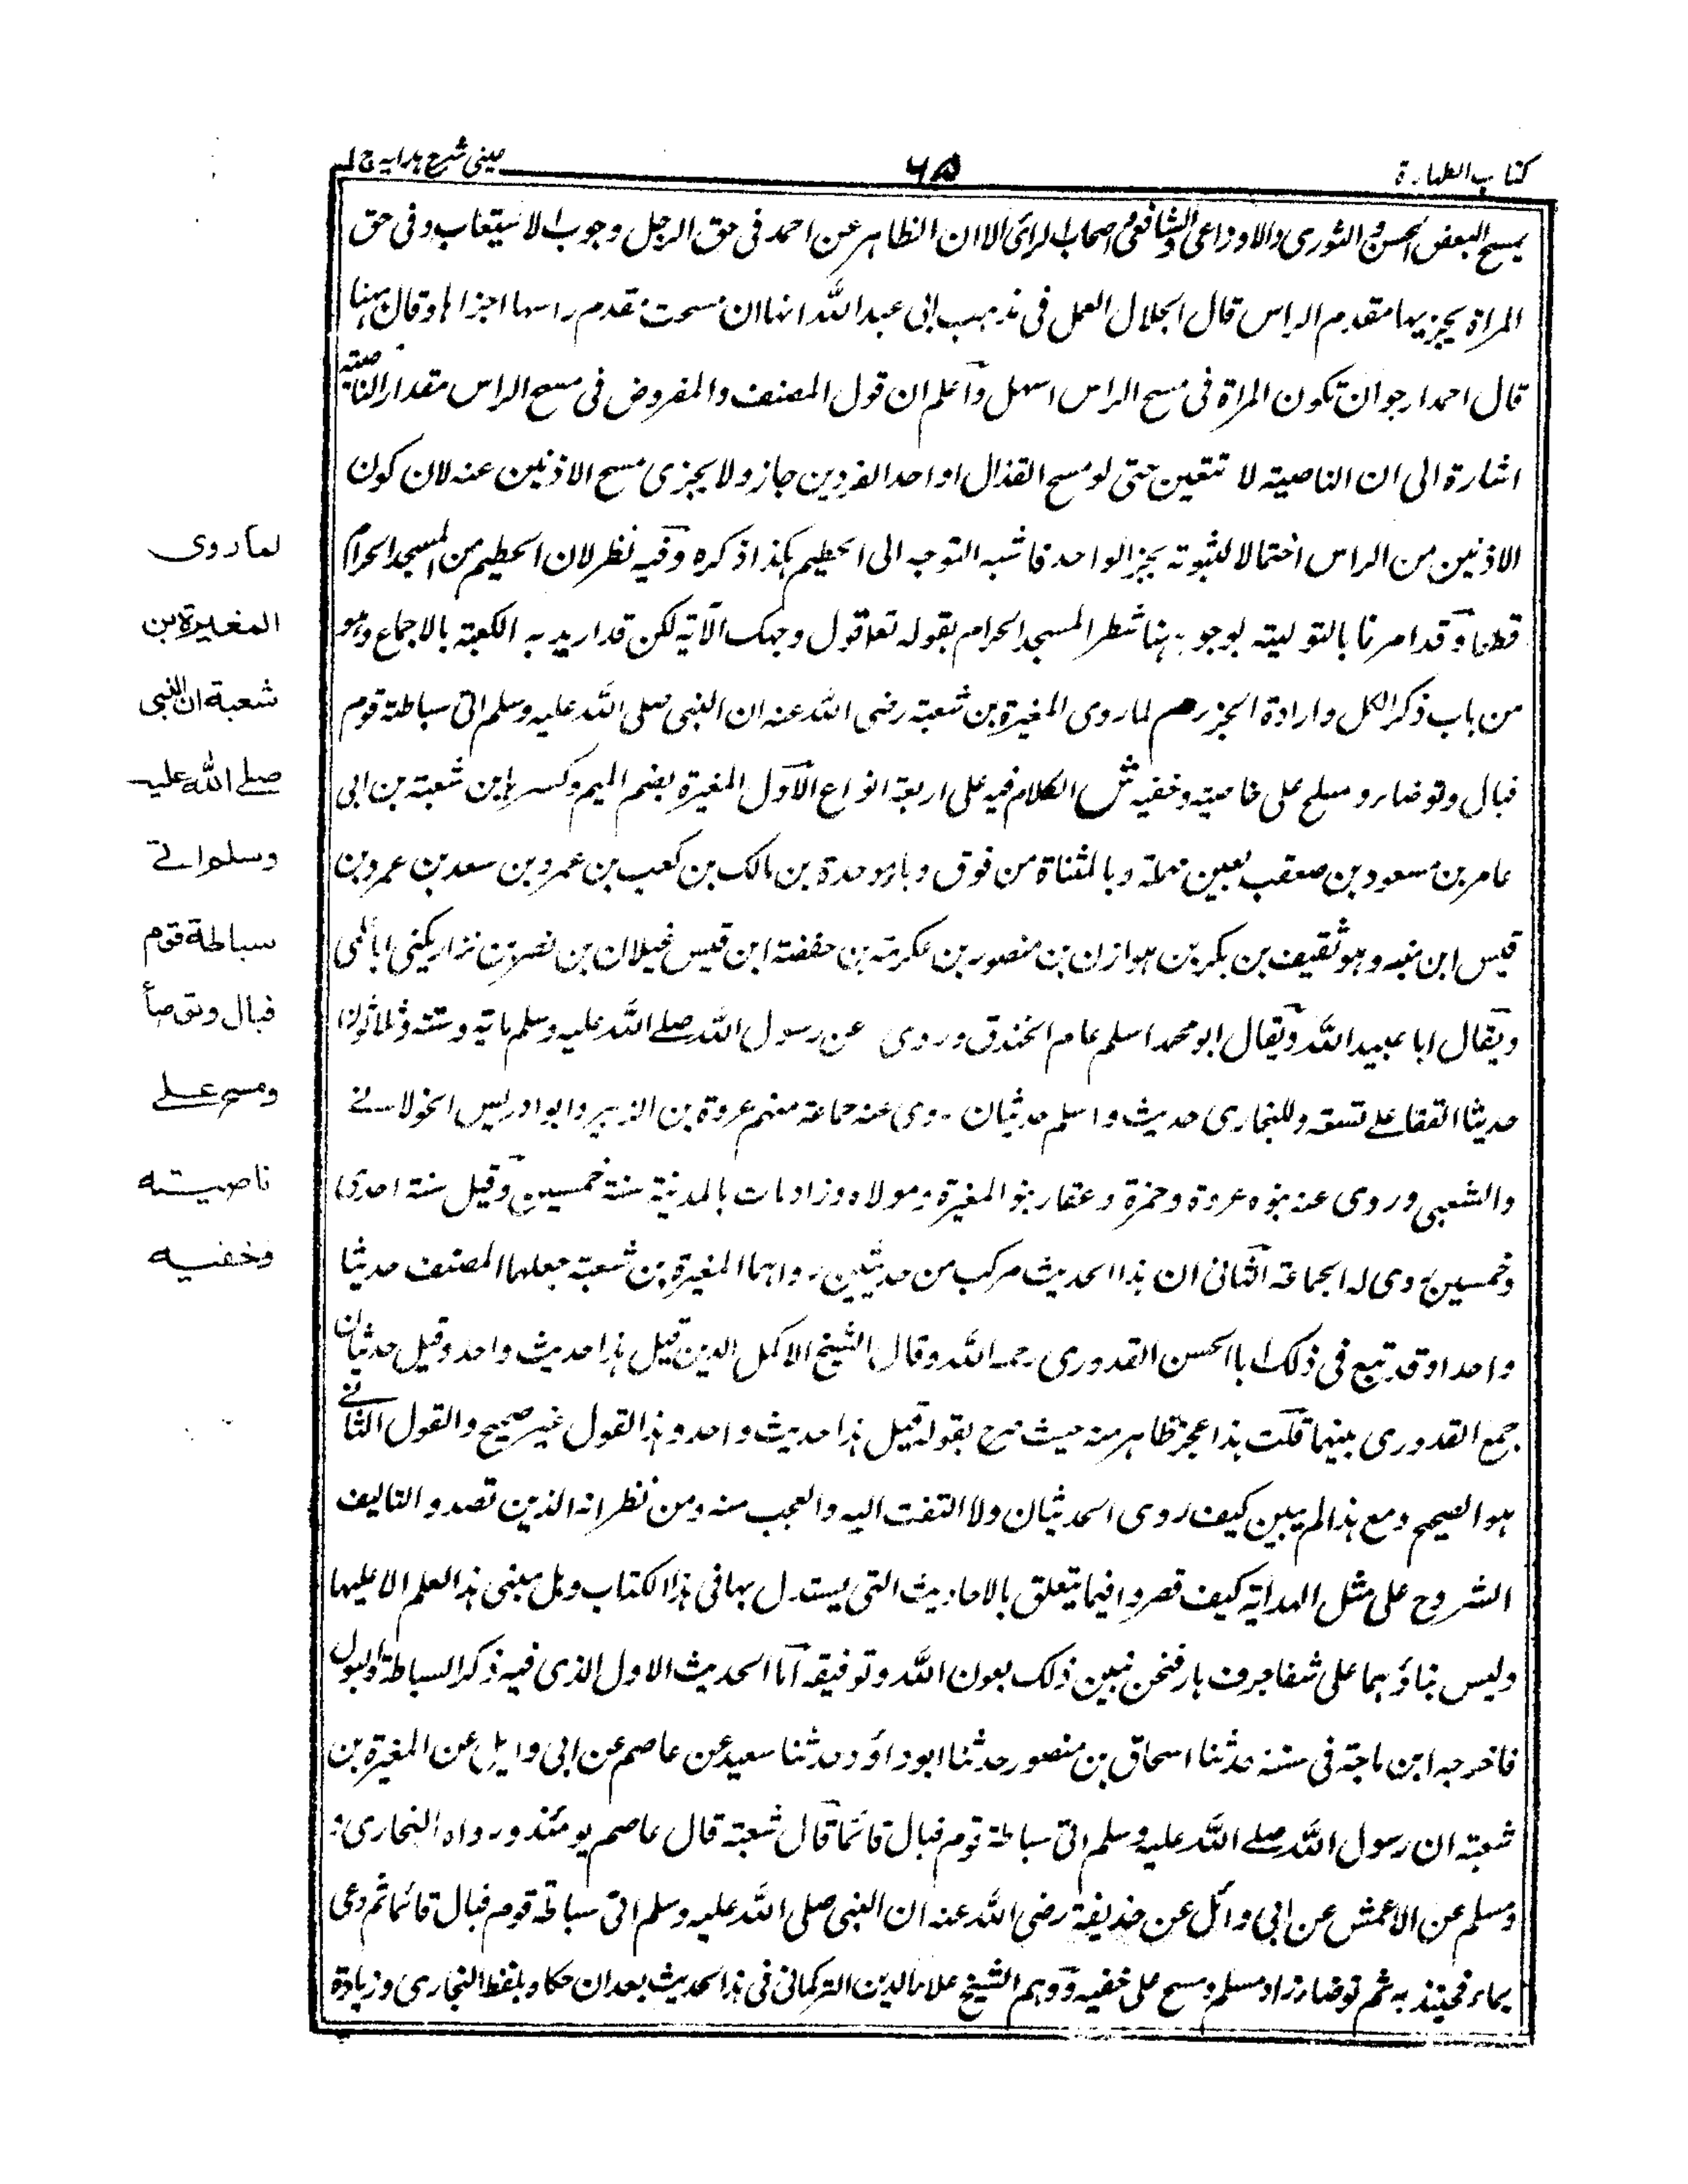 كتاب الطهارة
٦٥
عينى شرح هدايه ج ١
يمسح البعض الحسن والثورى والاوزاعى والشافعى واصحاب الرائى الا ان الظاهر عن احمد فى حق الرجل وجوب الاستيعاب وفى حق
المراة يجزيها مقدم الراس قال الخلال العمل فى مذهب ابى عبد الله انها ان مسحت مقدم راسها اجزاها وقال مهنا
قال احمد ارجو ان تكون المراة فى مسح الراس اسهل واعلم ان قول المصنف والمفروض فى مسح الراس مقدار الناصية
اشارة الى ان الناصية لا تتعين حتى لو مسح القذال او احد الفودين جاز ولا يجزى مسح الاذنين عنه لان كون
الاذنين من الراس احتمالا لثبوته بخبر الواحد فاشبه التوجه الى الحطيم هكذا ذكره وفيه نظر لان الحطيم من المسجد الحرام
قطعا وقد امرنا بالتولية لوجوهنا شطر المسجد الحرام بقوله تعا فول وجهك الآية لكن قد اريد به الكعبة بالاجماع وهو
من باب ذكر الكل وارادة الجزء م لما روى المغيرة بن شعبة رضى الله عنه ان النبى صلى الله عليه وسلم اتى سباطة قوم
فبال وتوضاء ومسح على ناصيته وخفيه ش الكلام فيه على اربعة انواع الاول المغيرة بضم الميم وكسرها بن شعبة بن ابى
عامر بن مسعود بن معتب بعين مهملة وبالمثناة من فوق وباء موحدة بن مالك بن كعب بن عمرو بن سعد بن عمرو بن
قيس ابن منبه وهو ثقيف بن بكر بن هوازن بن منصور بن عكرمة بن حفضة ابن قيس غيلان بن نصر بن نزار يكنى ابا عيسى
ويقال ابا عبيد الله ويقال ابو محمد اسلم عام الخندق وروى عن رسول الله صلے الله عليه وسلم ماية وستة وثلاثون
حديثا اتفقا على تسعة وللبخارى حديث ولمسلم حديثان روى عنه جماعة منهم عروة بن الزبير وابو ادريس الخولانے
والشعبى وروى عنه بنوه عروة وحمزة وعقار بنو المغيرة ومولاه وزاد مات بالمدينة سنة خمسين وقيل سنة احدى
وخمسين روى له الجماعة الثانى ان هذا الحديث مركب من حديثين رواهما المغيرة بن شعبة جعلهما المصنف حديثا
واحدا وقد تبع فى ذلك ابا الحسن القدورى رحمه الله وقال الشيخ الاكمل الدين قيل هذا حديث واحد وقيل حديثان
جمع القدورى بينهما قلت هذا عجز ظاهر منه حيث صرح بقوله قيل هذا حديث واحد وهذا القول غير صحيح والقول الثانے
هو الصحيح ومع هذا لم يبين كيف روى الحديثان ولا التفت اليه والعجب منه ومن نظرائه الذين تصدوا التاليف
الشروح على مثل الهداية كيف قصروا فيما يتعلق بالاحاديث التى يستدل بها فى هذا الكتاب وهل مبنى هذا العلم الا عليها
وليس بناؤهما على شفا جرف هار فنحن نبين ذلك بعون الله وتوفيقه اما الحديث الاول الذى فيه ذكر السباطة والبول
فاخرجه ابن ماجة فى سننه حدثنا اسحاق بن منصور حدثنا ابو داؤد حدثنا سعيد عن عاصم عن ابى وايل عن المغيرة بن
شعبة ان رسول الله صلے الله عليه وسلم اتى سباطة قوم فبال قائما قال شعبة قال عاصم يومئذ ورواه البخارى
ومسلم عن الاعمش عن ابى وائل عن حذيفة رضى الله عنه ان النبى صلى الله عليه وسلم اتى سباطة قوم فبال قائما ثم دعى
بماء فجئته به ثم توضاء زاد مسلم ومسح على خفيه ووهم الشيخ علاء الدين التركمانى فى هذا الحديث بعد ان حكاه بلفظ البخارى وزيادة
لما روى
المغيرة بن
شعبة ان النبى
صلے الله عليه
وسلم اتے
سباطة قوم
فبال وتوضأ
ومسح علے
ناصيته
وخفيه